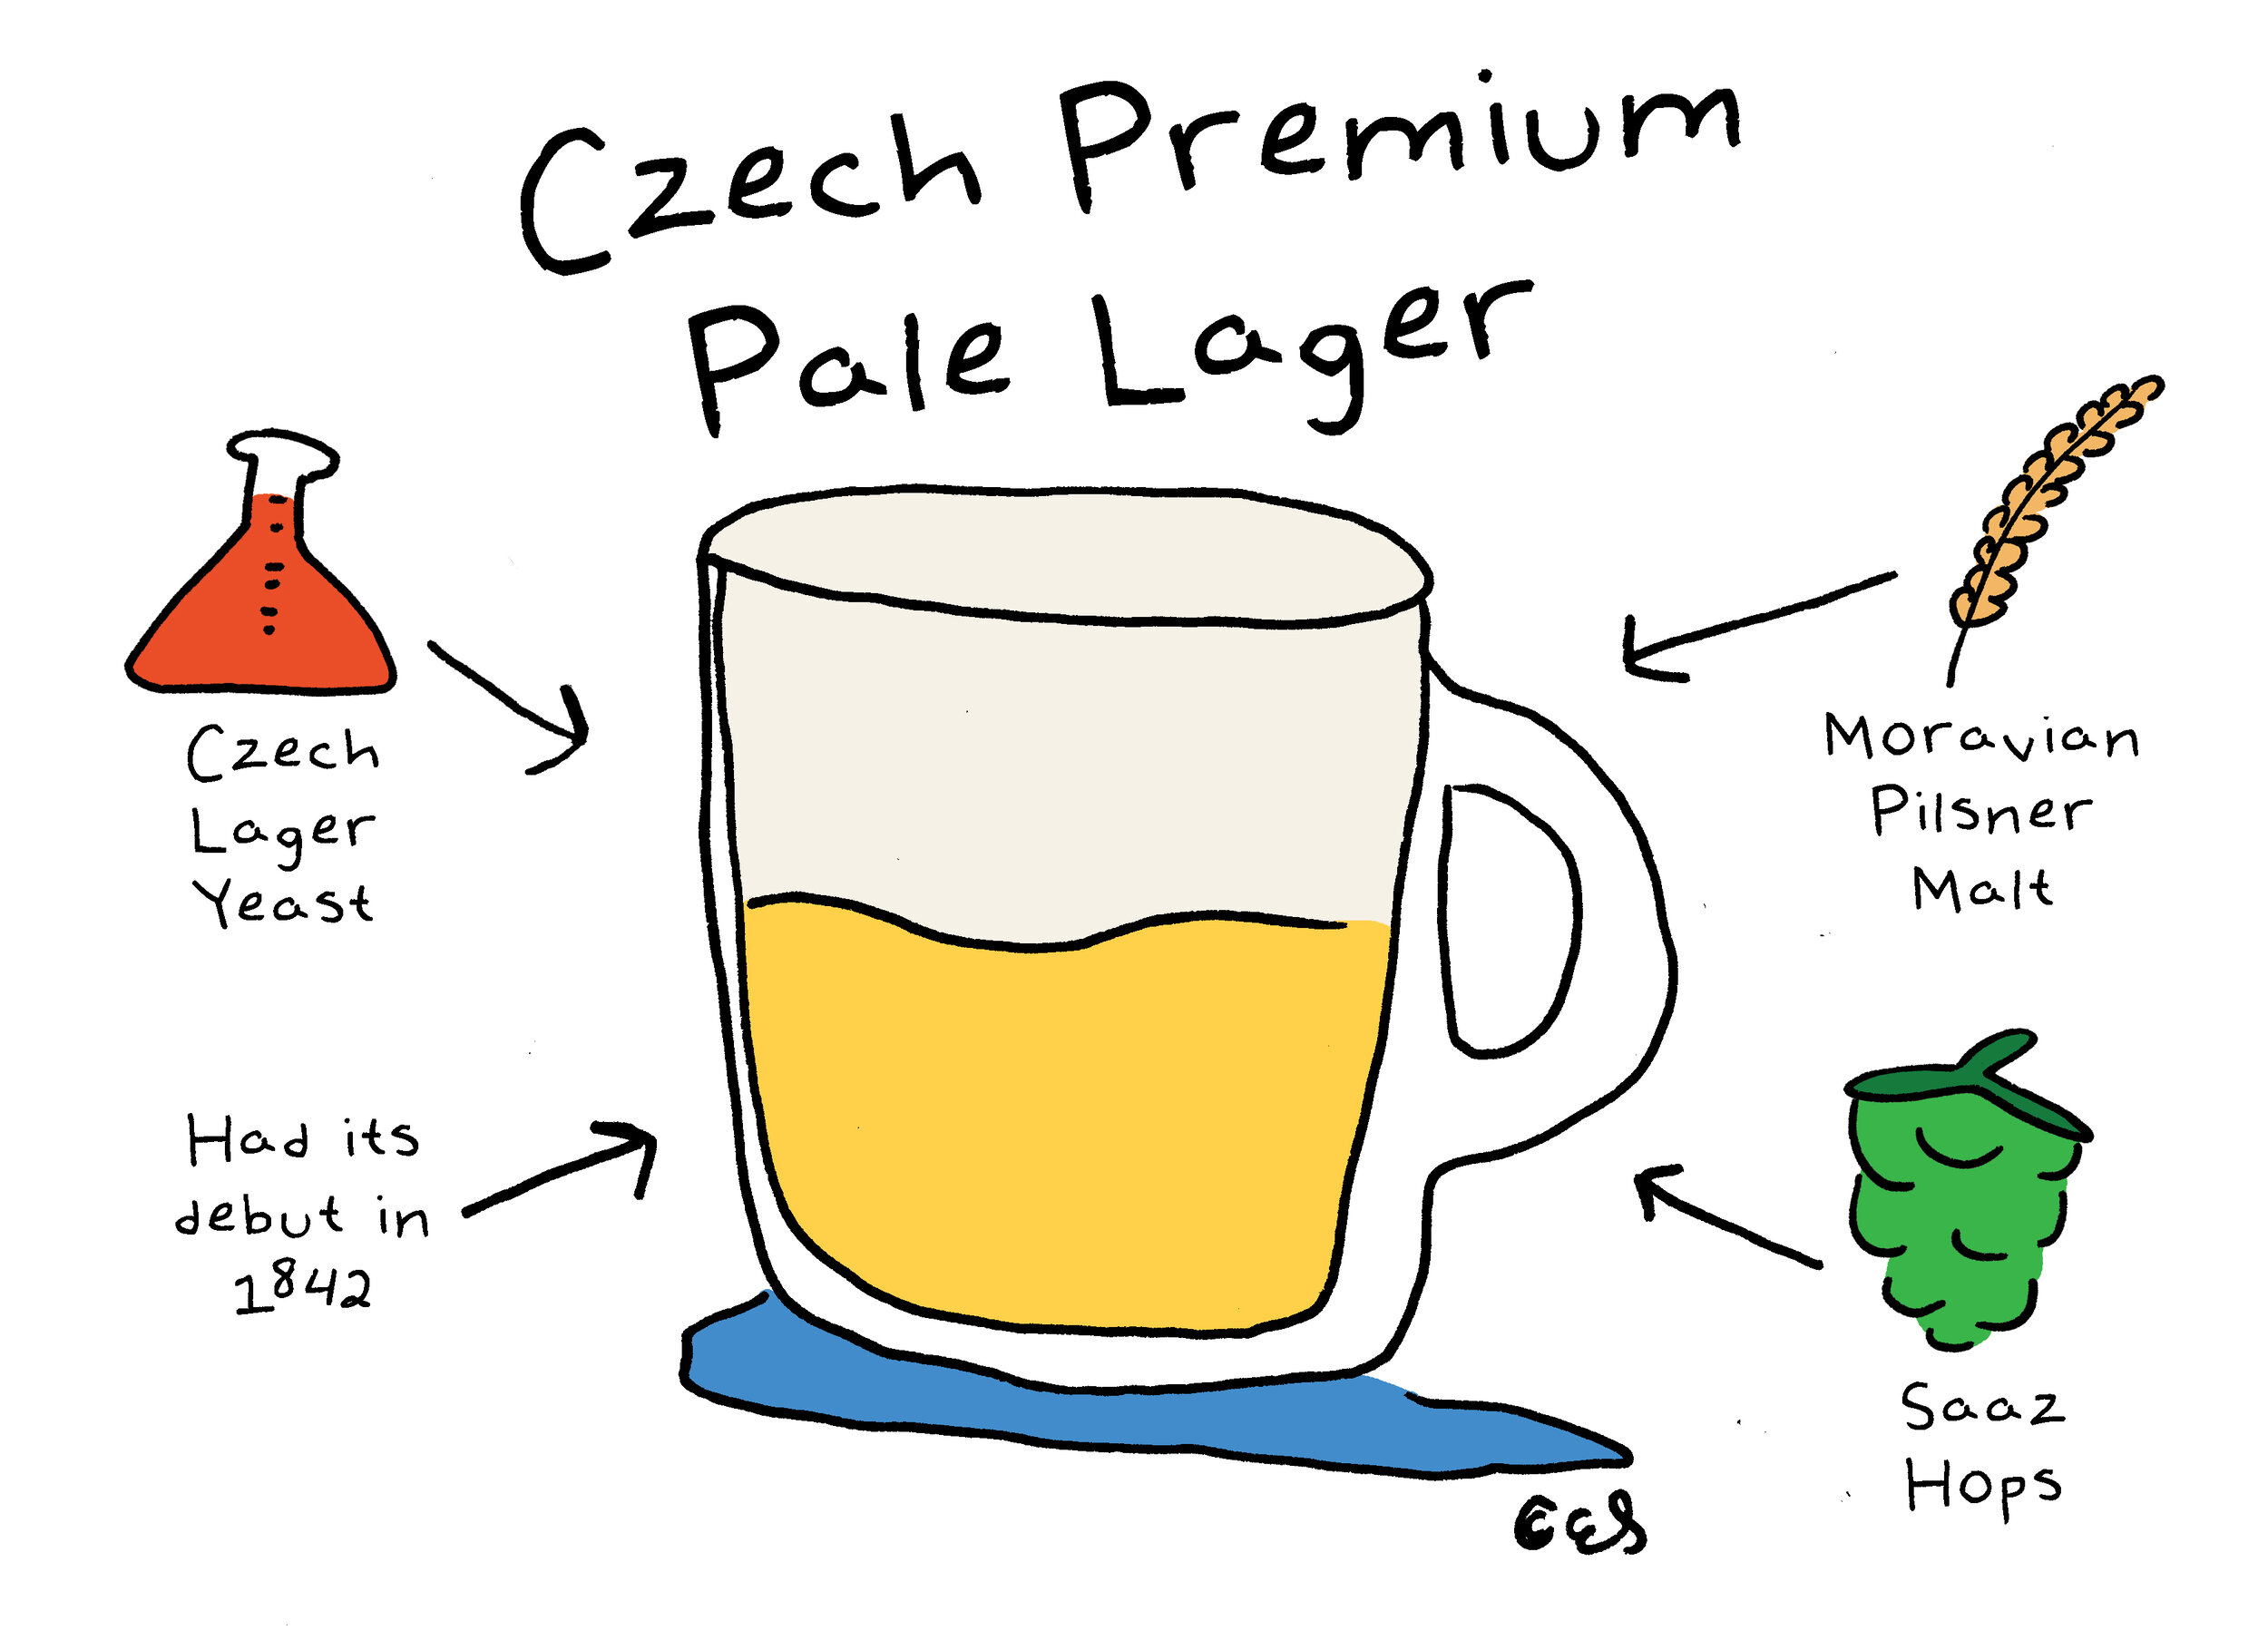 Czech Premium
Pale Lager
Czech
Lager
Yeast
Moravian
Pilsner
Malt
Had its
debut in
1842
Saaz
Hops